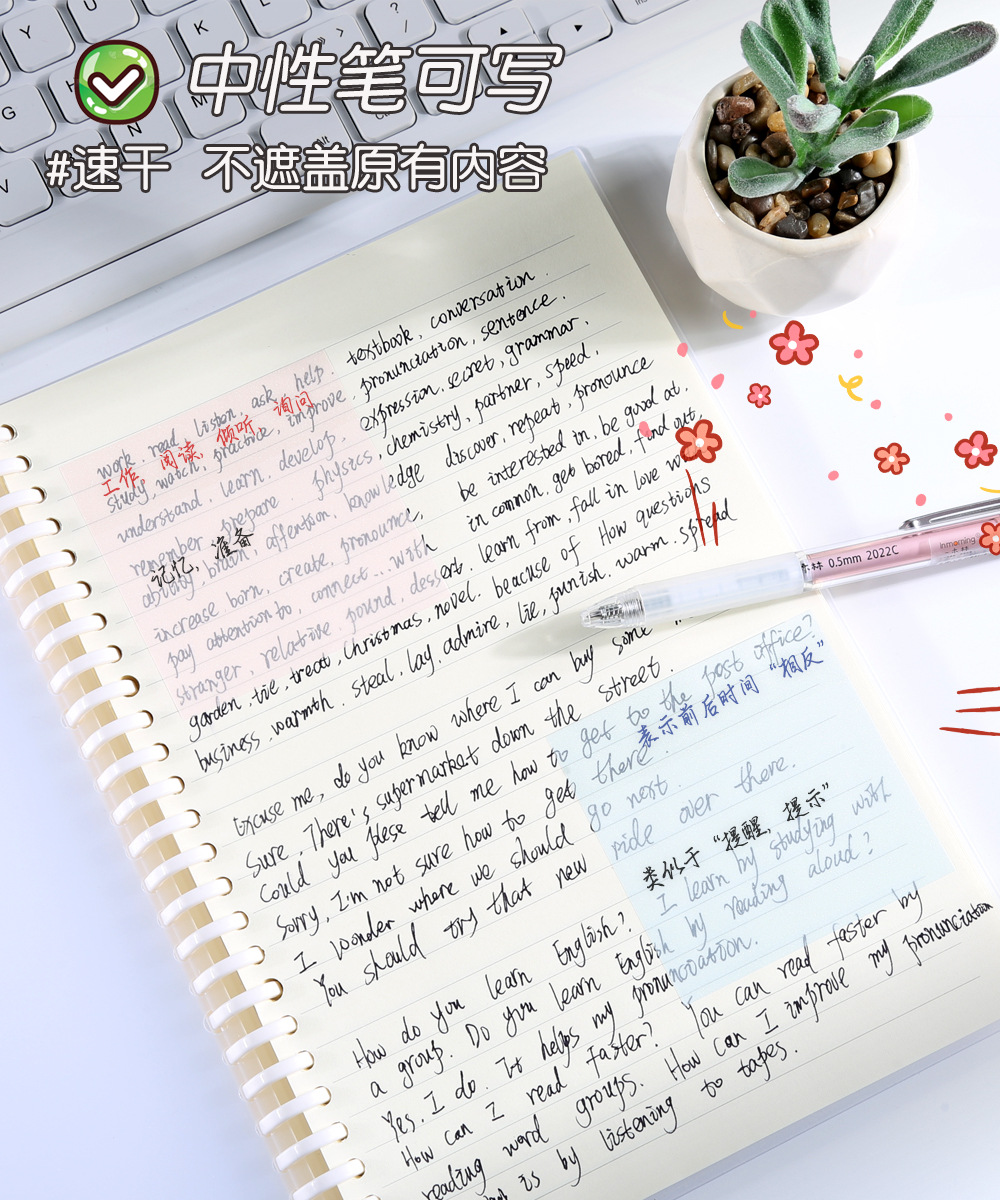 中性笔可写
#速干 不遮盖原有内容
work, read, liston, ask, help. textbook, conversation.
工作, 阅读, 倾听, 询问
study, watch, practice, improve, pronunciation, sentence.
understand, learn, develop, expression, secret, grammar,
remember, prepare, physics, chemistry, partner, speed,
记忆, 准备
ability, brain, attention, knowledge discover, repeat, pronounce
increase born, create, pronounce, be interested in, be good at,
pay attention to, connect...with in common, get bored, find out,
stranger, relative, pound, dessert, learn from, fall in love
garden, tie, treat, Christmas, novel. beacuse of How questions
business, warmth, steal, lay, admire, lie, punish, warm, spread
Excuse me, do you know where I can buy some
Sure. There's supermarket down the street.
Could you plese tell me how to get to the post office?
表示前后时间 "相反"
Sorry, I'm not sure how to get there.
I wonder where we should go next.
You should try that new ride over there.
类似于 "提醒, 提示"
How do you learn English? I learn by studying with
a group. Do you learn English by reading aloud?
Yes. I do. It helps my pronuncoation.
How can I read faster? You can read faster by
reading word groups. How can I improve my pronunciation
is by listening to tapes.
0.5mm 2022C
Inmorning